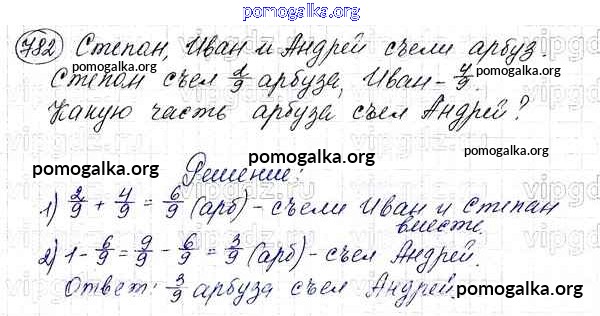 pomogalka.org
782 Степан, Иван и Андрей съели арбуз.
Степан съел 2/9 арбуза, Иван - 4/9.
Какую часть арбуза съел Андрей?
pomogalka.org
pomogalka.org
pomogalka.org
Решение:
1) 2/9 + 4/9 = 6/9 (арб) - съели Иван и Степан
вместе.
2) 1 - 6/9 = 9/9 - 6/9 = 3/9 (арб) - съел Андрей.
Ответ: 3/9 арбуза съел Андрей.
pomogalka.org
pomogalka.org
pomogalka.org